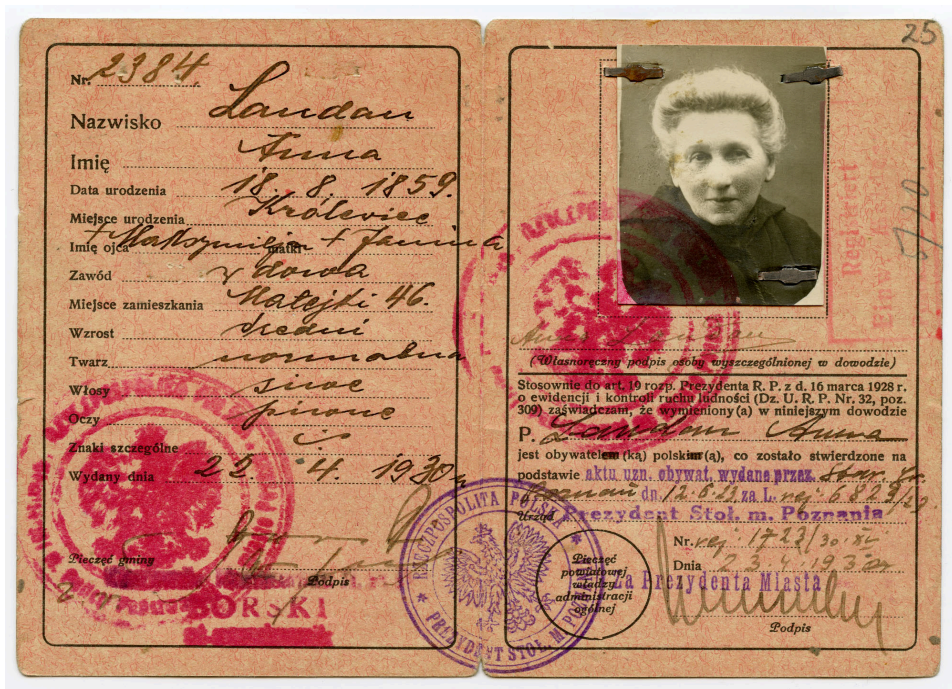 Nr. 2384
Nazwisko Landau
Imię Anna
Data urodzenia 18. 8. 1859.
Miejsce urodzenia Królewiec
Imię ojca + Maksymiljan matki + Janina
Zawód wdowa
Miejsce zamieszkania Matejki 46.
Wzrost średni
Twarz normalna
Włosy siwe
Oczy piwne
Znaki szczególne
Wydany dnia 22. 4. 1930
Pieczęć gminy
Podpis
GÓRSKI
25
710
Registriert
(Własnoręczny podpis osoby wyszczególnionej w dowodzie)
Stosownie do art. 19 rozp. Prezydenta R. P. z d. 16 marca 1928 r.
o ewidencji i kontroli ruchu ludności (Dz. U. R. P. Nr. 32, poz.
309) zaświadczam, że wymieniony(a) w niniejszym dowodzie
P. Landau Anna
jest obywatelem(ką) polskim(ą), co zostało stwierdzone na
podstawie aktu uzn. obywat. wydane przez Star.
Poznań dn. 12.6.29 za L.
Urząd Prezydent Stoł. m. Poznania
Nr. rej 1723/30
Dnia 22 4 1930
Za Prezydenta Miasta
Podpis
RZECZPOSPOLITA POLSKA
* PREZYDENT STOŁ. M. POZNANIA *
Pieczęć
powiatowej
władzy
administracji
ogólnej